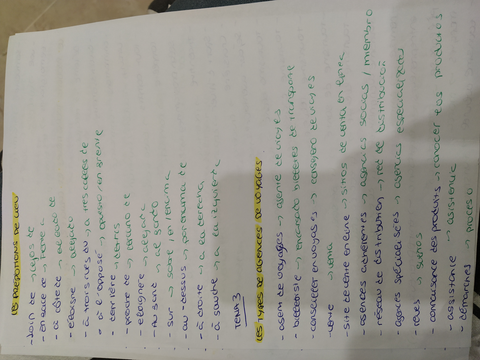 LES PREPOSITIONS DE LIEU
- loin de → lejos de
- en face de → frente a
- à côté de → al lado de
- éloigné → alejado
- à trois rues de → a tres calles de
- à l'opposé → opuesto en frente
- derrière → detrás
- proche de → cerca de
- éloignée → alejada
- au sud → al sur
- sur → sobre, encima
- au dessus → por encima de
- à droite → a la derecha
- à gauche → a la izquierda
TEMA 3
LES TYPES DE AGENCES DE VOYAGES
- agent de voyages → agente de viajes
- billettiste → encargado billetes de transporte
- conseiller en voyages → consejero de viajes
- vente → venta
- site de vente en ligne → sitios de venta en línea
- agences adhérentes → agencias socias / miembro
- réseau de distribution → red de distribución
- agences spécialisées → agencias especializadas
- rêves → sueños
- connaissance des produits → conocer los productos
- assistance → asistencia
- démarches → proceso